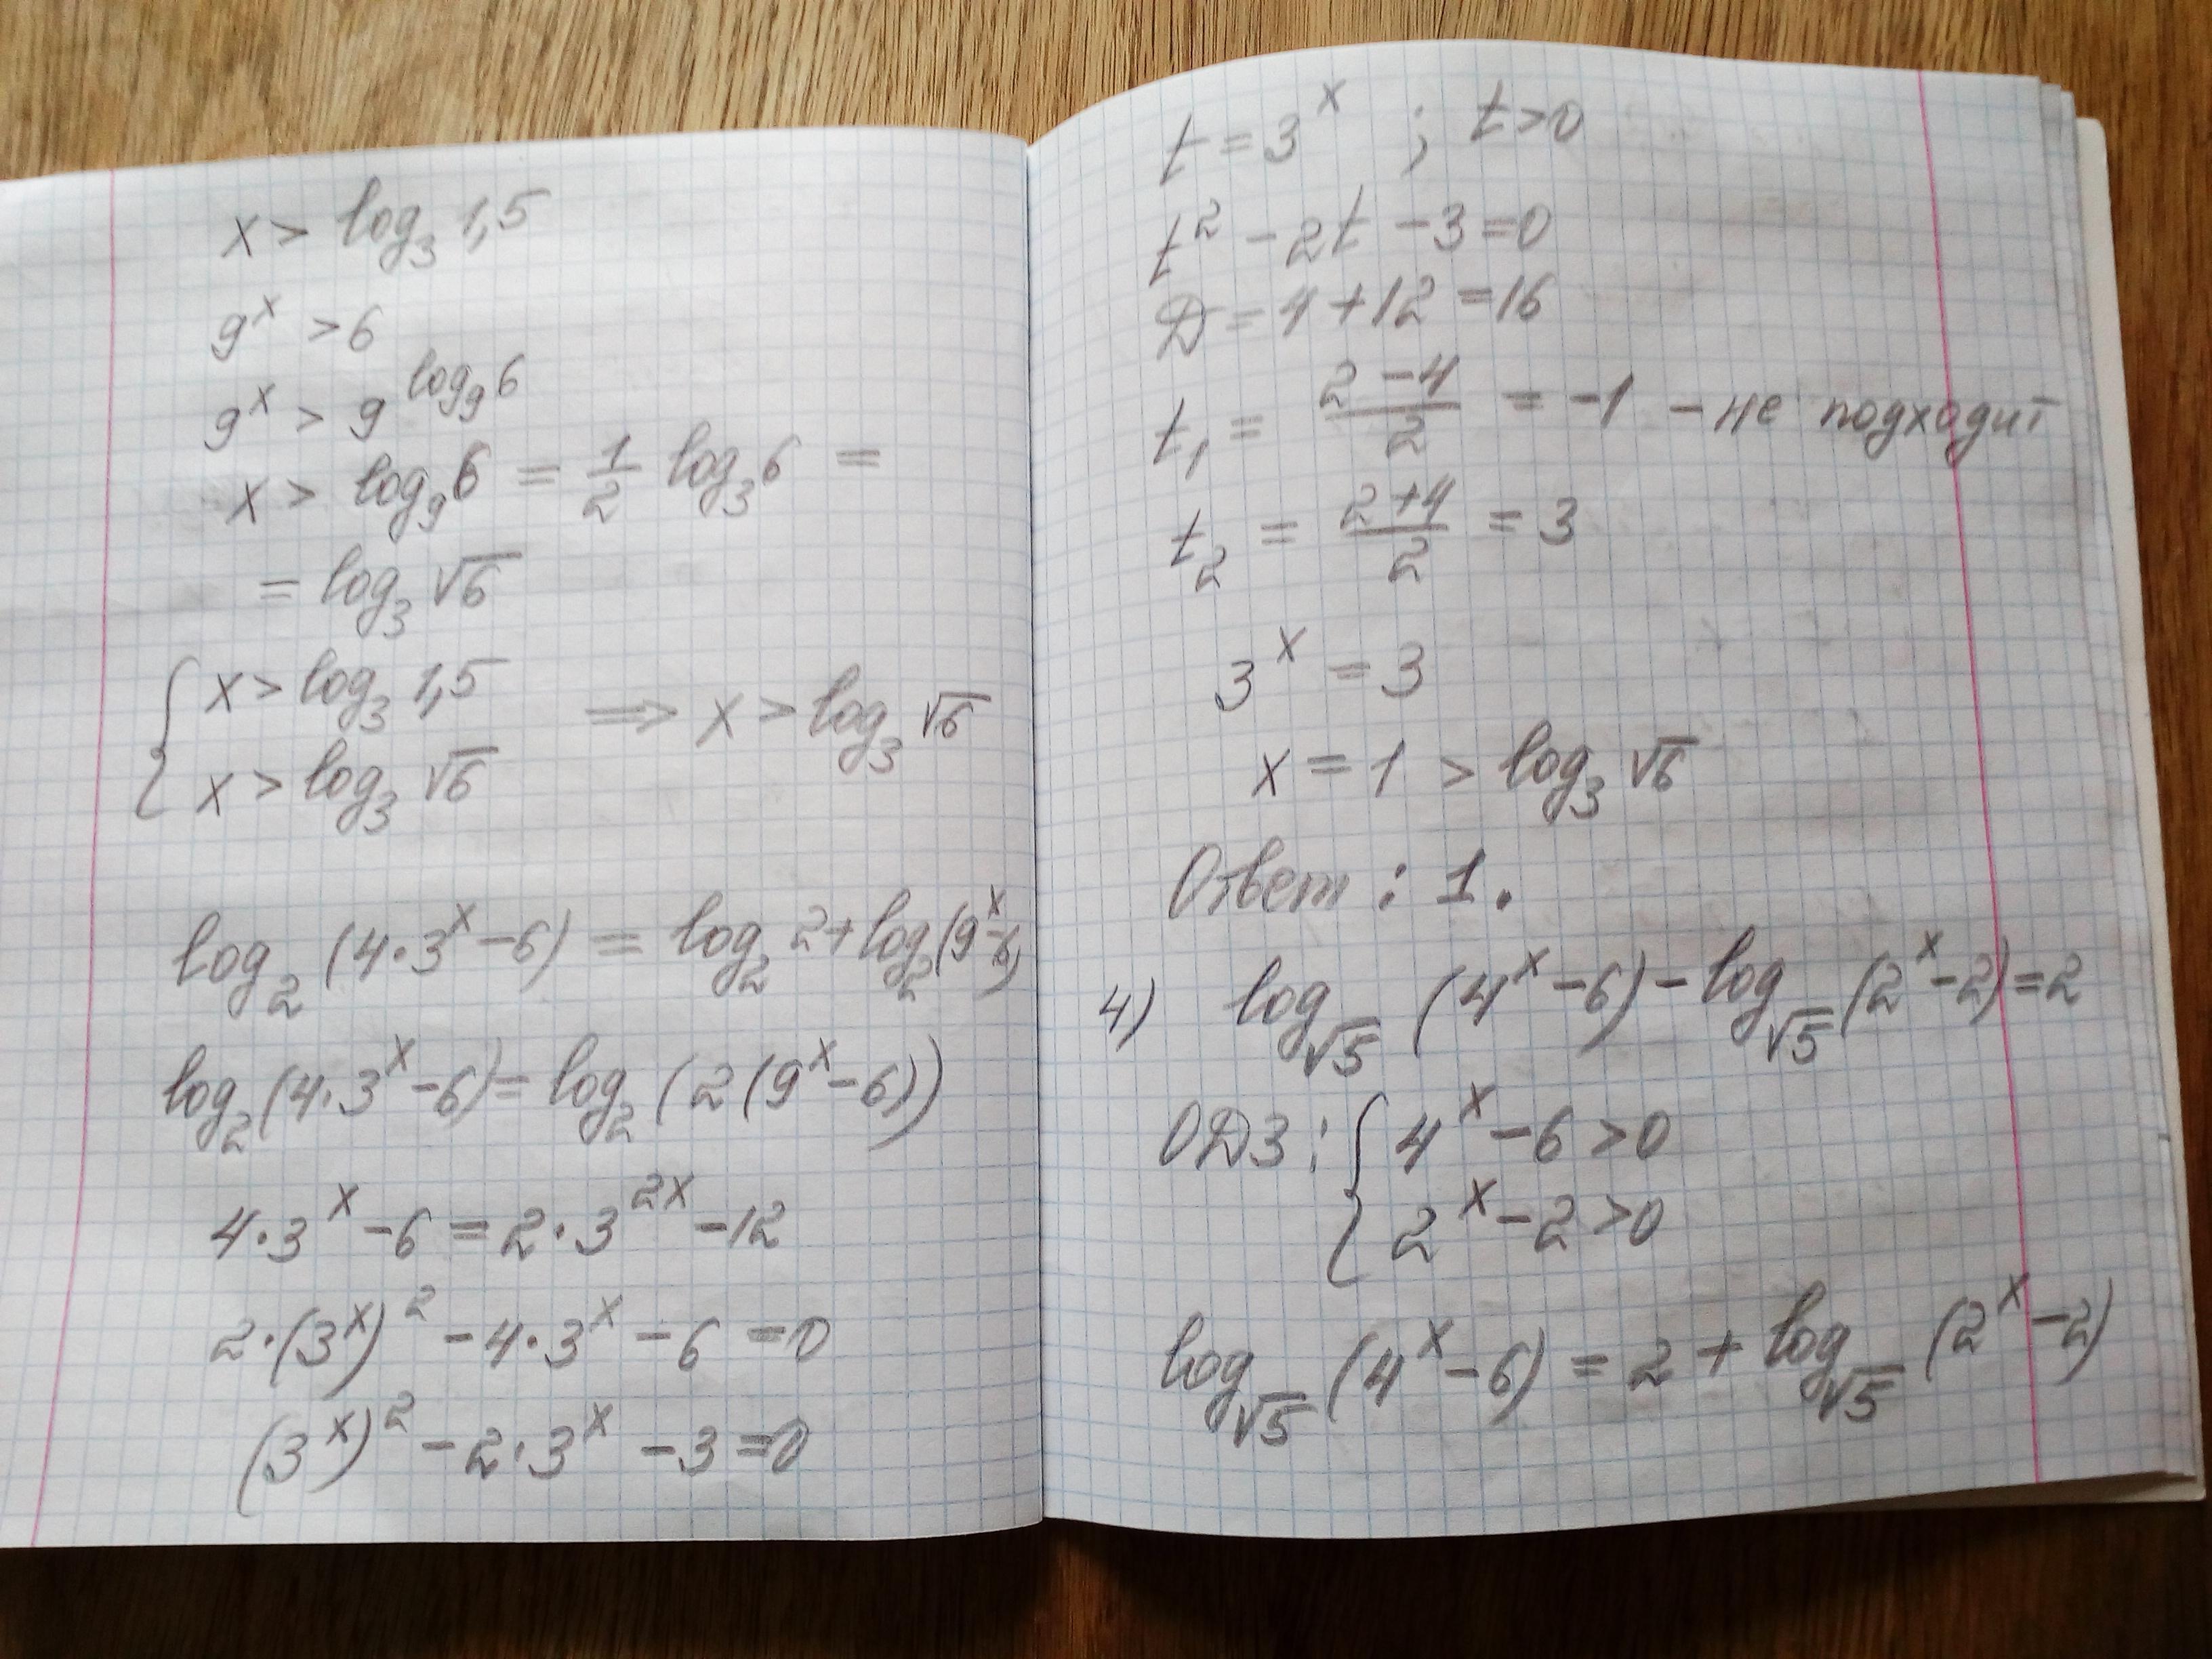 x > log₃ 1,5
9ˣ > 6
9ˣ > 9^(log₉ 6)
x > log₉ 6 = 1/2 log₃ 6 =
= log₃ √6
{ x > log₃ 1,5
{ x > log₃ √6 ⟹ x > log₃ √6
log₂ (4·3ˣ − 6) = log₂ 2 + log₂ (9ˣ − 6)
log₂ (4·3ˣ − 6) = log₂ (2 (9ˣ − 6))
4·3ˣ − 6 = 2·3²ˣ − 12
2·(3ˣ)² − 4·3ˣ − 6 = 0
(3ˣ)² − 2·3ˣ − 3 = 0
t = 3ˣ ; t > 0
t² − 2t − 3 = 0
D = 4 + 12 = 16
t₁ = (2 − 4)/2 = −1 − не подходит
t₂ = (2 + 4)/2 = 3
3ˣ = 3
x = 1 > log₃ √6
Ответ : 1.
4) log_√5 (4ˣ − 6) − log_√5 (2ˣ − 2) = 2
ОДЗ : { 4ˣ − 6 > 0
{ 2ˣ − 2 > 0
log_√5 (4ˣ − 6) = 2 + log_√5 (2ˣ − 2)